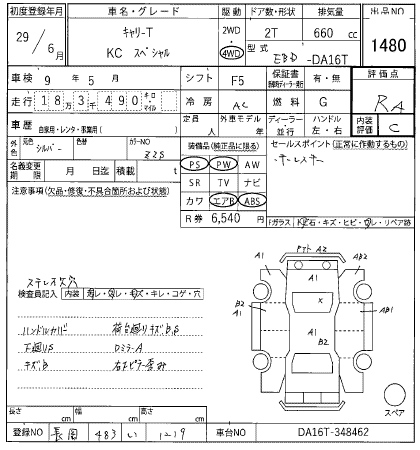 初度登録年月 車名・グレード 駆動 ドア数・形状 排気量 出品NO
29年6月 キャリーT KC スペシャル 2WD・4WD 2T 660 cc 1480
型式 EBD-DA16T
車検 9年5月 シフト F5 保証書 有・無 評価点
走行 18万3千490 キロ・マイル 冷房 AC 燃料 G RA
車歴 自家用・レンタ・事業用( ) 定員 人 外車モデル 年 ディーラー・並行 ハンドル 左・右 内装評価 C
外色 元色 シルバー 色替 カラーNO Z2S
装備品(純正品に限る) セールスポイント(正常に作動するもの)
名義変更期限 月 日迄 積載 t
PS PW AW
SR TV ナビ
カワ エアB ABS
R券 6,540円
注意事項(欠品・修復・不具合箇所および状態)
Fガラス
A2
A1 AB2
K
B2 A1 B2 AB1
A1 A1
スペア
ステレオ欠穴
検査員記入 内装
ハンドルカバー 荷台廻りキズB,S
下廻りS DミラーA
キズB 右Bピラー歪み
長さ cm 幅 cm 高さ cm
登録NO 長岡 483 い 1219 車台NO DA16T-348462